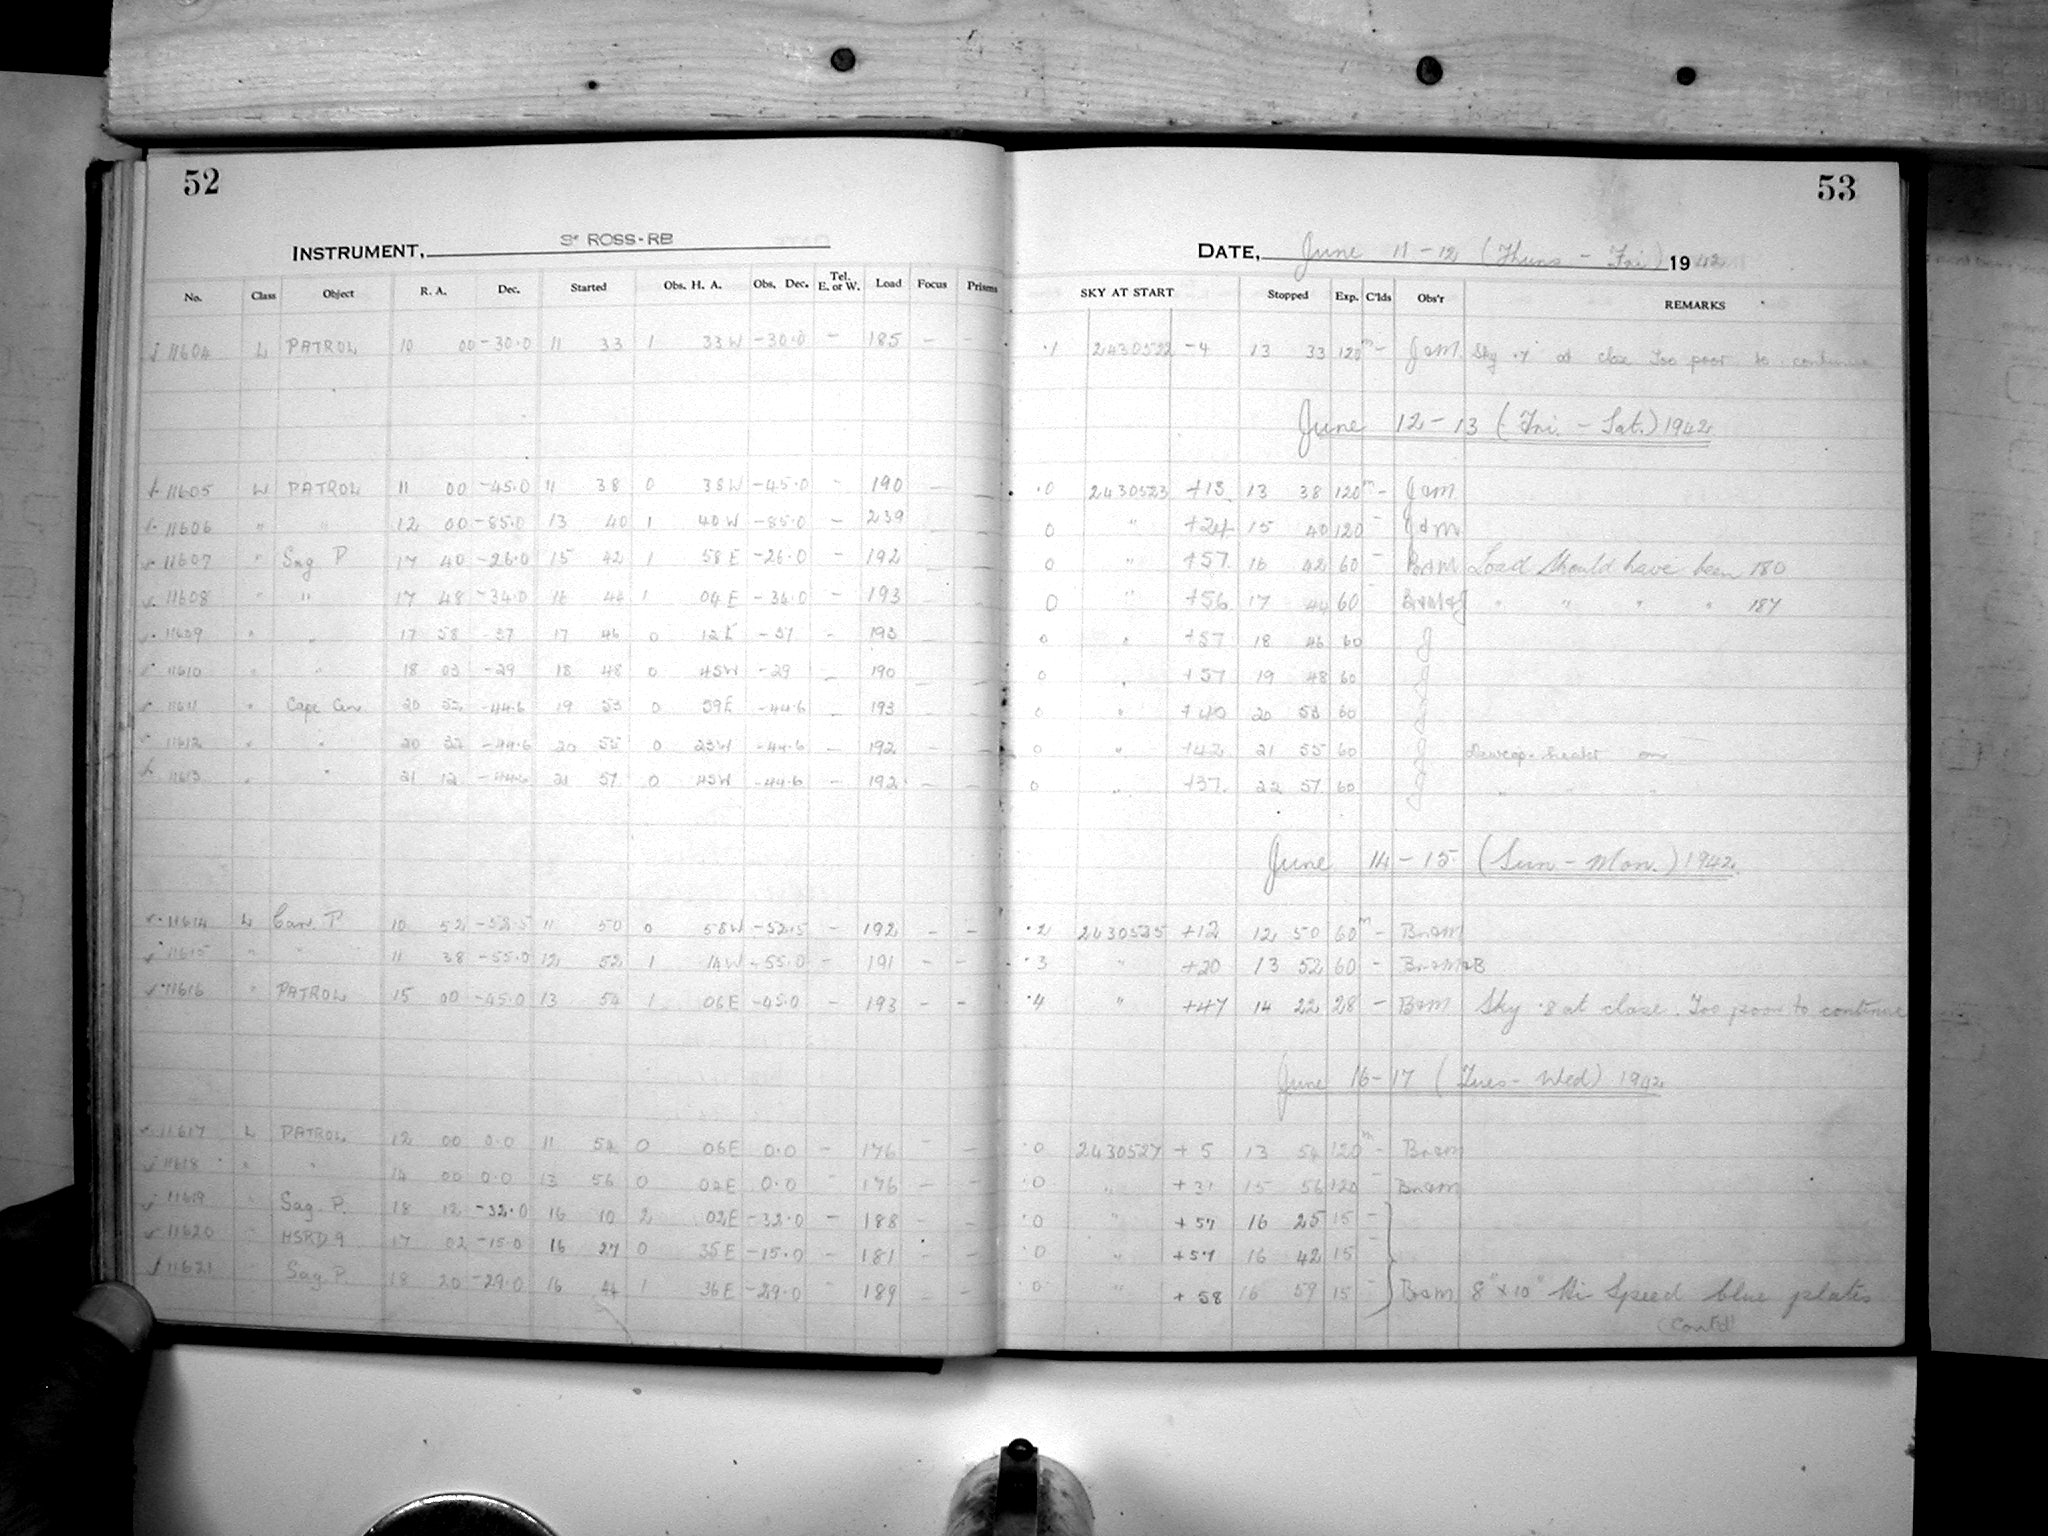 52
INSTRUMENT, 3" ROSS-RB
No. Class Object R. A. Dec. Started Obs. H. A. Obs. Dec. Tel. E. or W. Load Focus Prisms
11604 L PATROL 10 00 -30.0 11 33 1 33W -30.0 - 185 - -
11605 L PATROL 11 00 -45.0 11 38 0 38W -45.0 - 190 - -
11606 " " 12 00 -85.0 13 40 1 40W -85.0 - 239
11607 " Sag P 17 40 -26.0 15 42 1 58E -26.0 - 192 - -
11608 " " 17 48 -34.0 16 44 1 04E -34.0 - 193 - -
11609 " " 17 58 -37 17 46 0 12E -37 - 193 - -
11610 " " 18 03 -29 18 48 0 45W -29 - 190 - -
11611 " Cape Cen. 20 52 -44.6 19 53 0 59E -44.6 - 193 - -
11612 " " 20 32 -44.6 20 55 0 23W -44.6 - 192 - -
11613 " " 21 12 -44.6 21 57 0 45W -44.6 - 192 - -
11614 L Car. P 10 52 -52.5 11 50 0 58W -52.5 - 192 - -
11615 " " 11 38 -55.0 12 52 1 14W -55.0 - 191 - -
11616 " PATROL 15 00 -45.0 13 54 1 06E -45.0 - 193 - -
11617 L PATROL 12 00 0.0 11 54 0 06E 0.0 - 176 - -
11618 " " 14 00 0.0 13 56 0 02E 0.0 - 176 - -
11619 " Sag. P. 18 12 -32.0 16 10 2 02E -32.0 - 188 - -
11620 " HSRD 9 17 02 -15.0 16 27 0 35E -15.0 - 181 - -
11621 " Sag P. 18 20 -29.0 16 44 1 36E -29.0 - 189 - -
53
DATE, June 11-12 (Thurs - Fri) 1942
SKY AT START Stopped Exp. C'lds Obs'r REMARKS
.1 2430522 -4 13 33 120m - J&M Sky .7 at close Too poor to continue
June 12-13 (Fri. - Sat.) 1942
.0 2430523 +13 13 38 120m - J&M
0 " +24 15 40 120 - J&M
0 " +57 16 42 60 - B&M Load should have been 180
0 " +56 17 44 60 - B&M&J " " " " 187
0 " +57 18 46 60 J
0 " +57 19 48 60 J
0 " +40 20 53 60 J
0 " +42 21 55 60 J Dewcap-heater on
0 " +37 22 57 60 J " " "
June 14-15 (Sun - Mon.) 1942
.2 2430525 +12 12 50 60m - B&M
.3 " +20 13 52 60 - B&M&B
.4 " +47 14 22 28 - B&M Sky .8 at close. Too poor to continue
June 16-17 (Tues - Wed) 1942
.0 2430527 +5 13 54 120m - B&M
.0 " +31 15 56 120 - B&M
.0 " +57 16 25 15 -
.0 " +57 16 42 15 -
.0 " +58 16 59 15 - B&M 8" x 10" Hi Speed blue plates
(Cont'd)